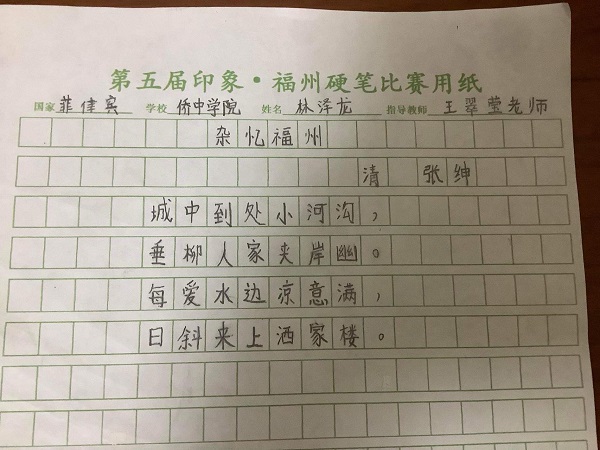 第五届印象·福州硬笔比赛用纸
国家 菲律宾 学校 侨中学院 姓名 林泽龙 指导教师 王翠莹老师
杂忆福州
清 张绅
城中到处小河沟，
垂柳人家夹岸幽。
每爱水边凉意满，
日斜来上洒家楼。